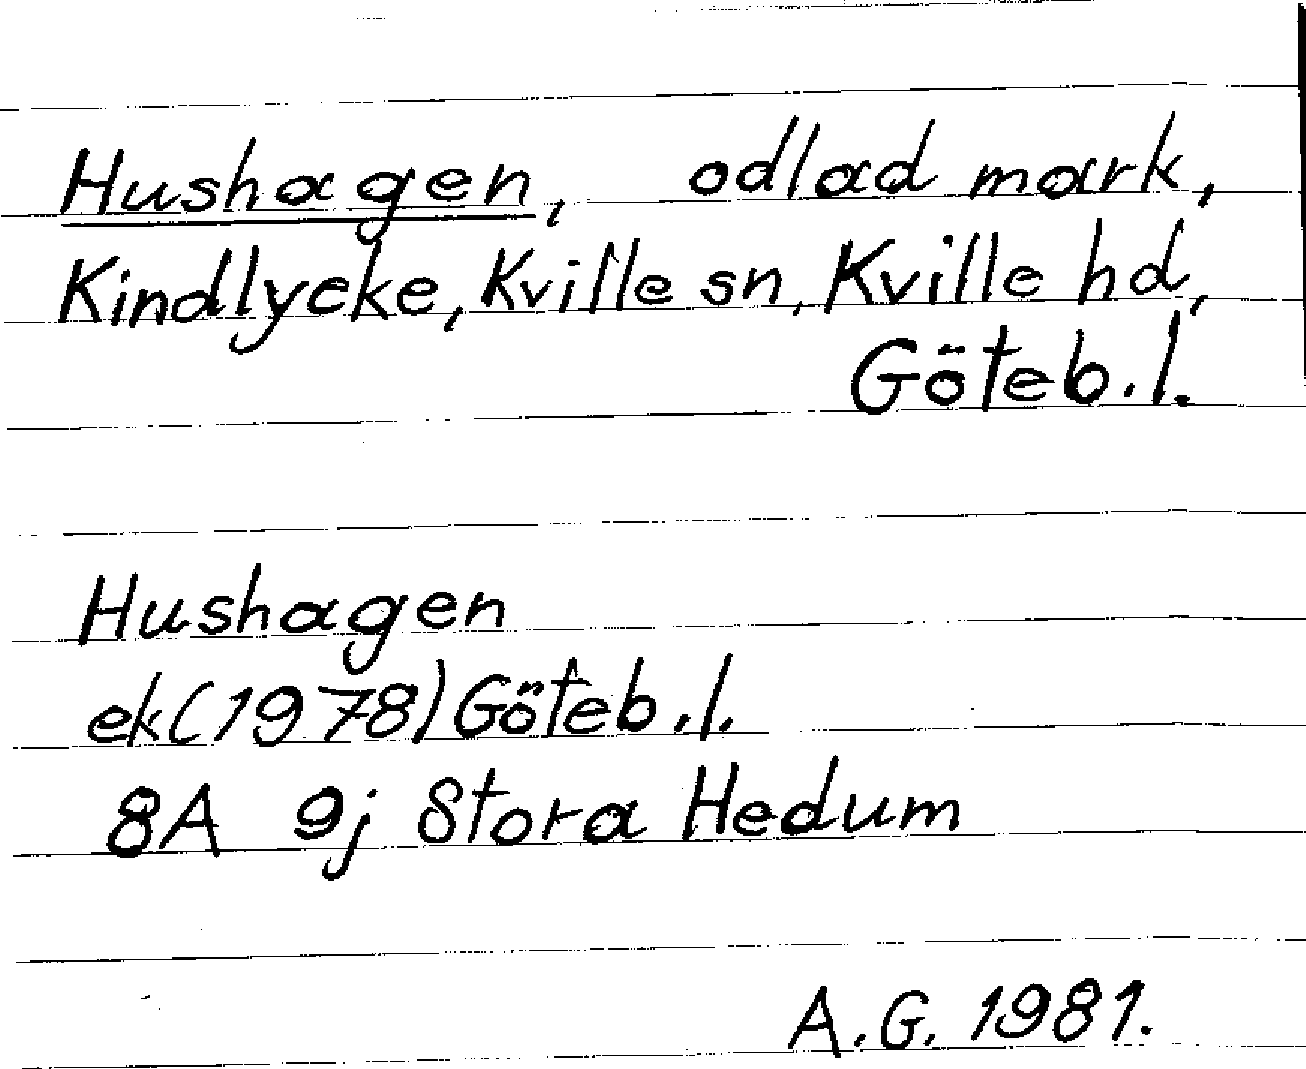 Hushagen, odlad mark,
Kindlycke, Kville sn, Kville hd,
Göteb. l.
Hushagen
ek (1978) Göteb. l.
8A 9j Stora Hedum
A. G. 1981.